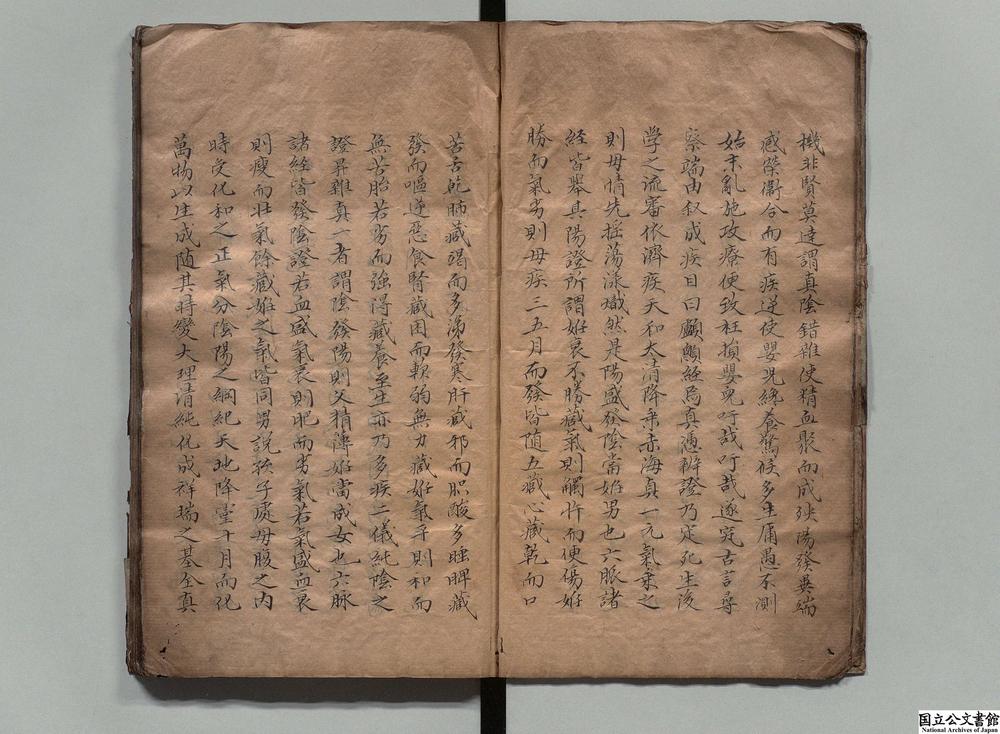 機非賢莫達謂真陰錯雜使精血聚而成殃陽發異端
惑榮衞合而有疾逆使嬰兒繞養驚候多生庸愚不測
始末亂施攻療便致枉損嬰兒吁哉吁哉遂究古言尋
察端由叙成疾目曰顱顖經焉真憑辨證乃定死生後
學之流審依濟疾天和太清降乗赤海真一元氣乗之
則母情先摇蕩漾熾然是陽盛發陰當姙男也六脈諸
経皆舉其陽證所謂姙衰不勝藏氣則觸忤而便傷姙
勝而氣劣則母疾三五月而發皆随五藏心藏乾而口
苦舌乾肺藏竭而多涕發寒肝藏邪而䏚酸多睡脾藏
發而嘔逆惡食腎藏困而軟弱無力藏姙氣平則和而
無苦胎若劣而強得藏養至生亦乃多疾二儀純陰之
證昇雜真一者謂陰發陽則父精薄姙當成女也六脉
諸經皆發陰證若血盛氣衰則肥而劣氣若氣盛血衰
則瘦而壮氣餘藏姙之氣皆同男説孩子處母腹之内
時受化和之正氣分陰陽之綱紀天地降靈十月而化
萬物以生成随其時變大理清純化成祥瑞之基全真
国立公文書館
National Archives of Japan